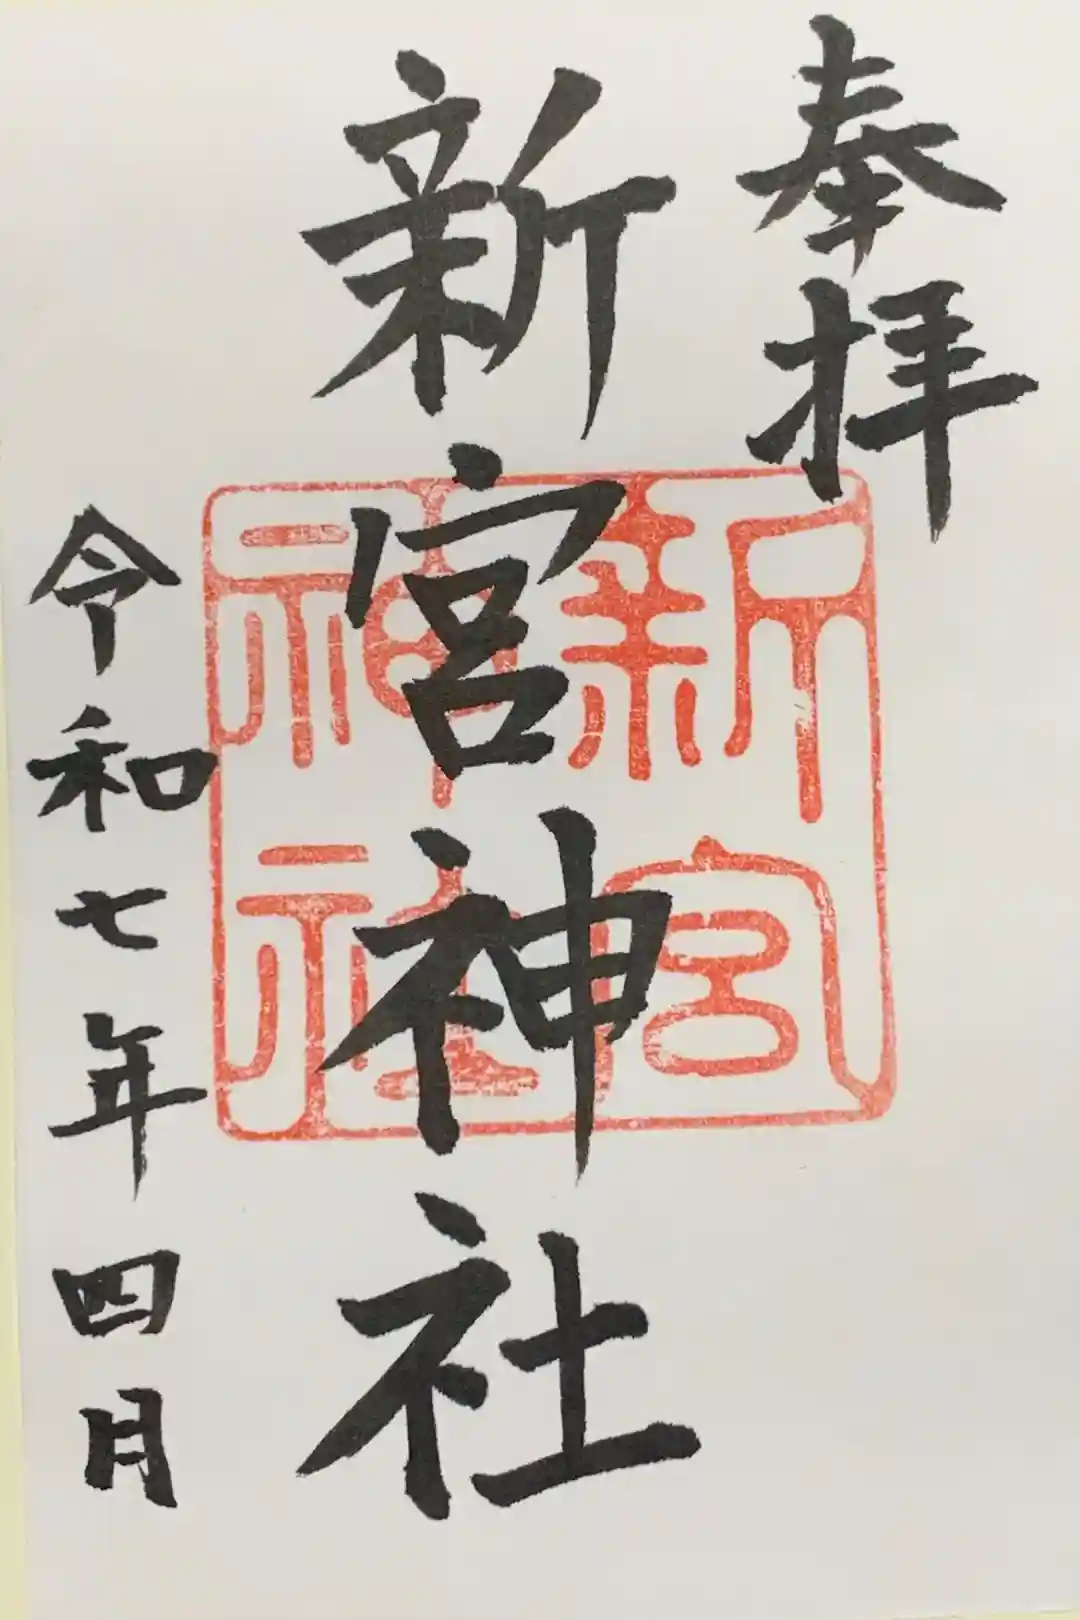 奉拝
新宮神社
新宮
神社
令和七年四月